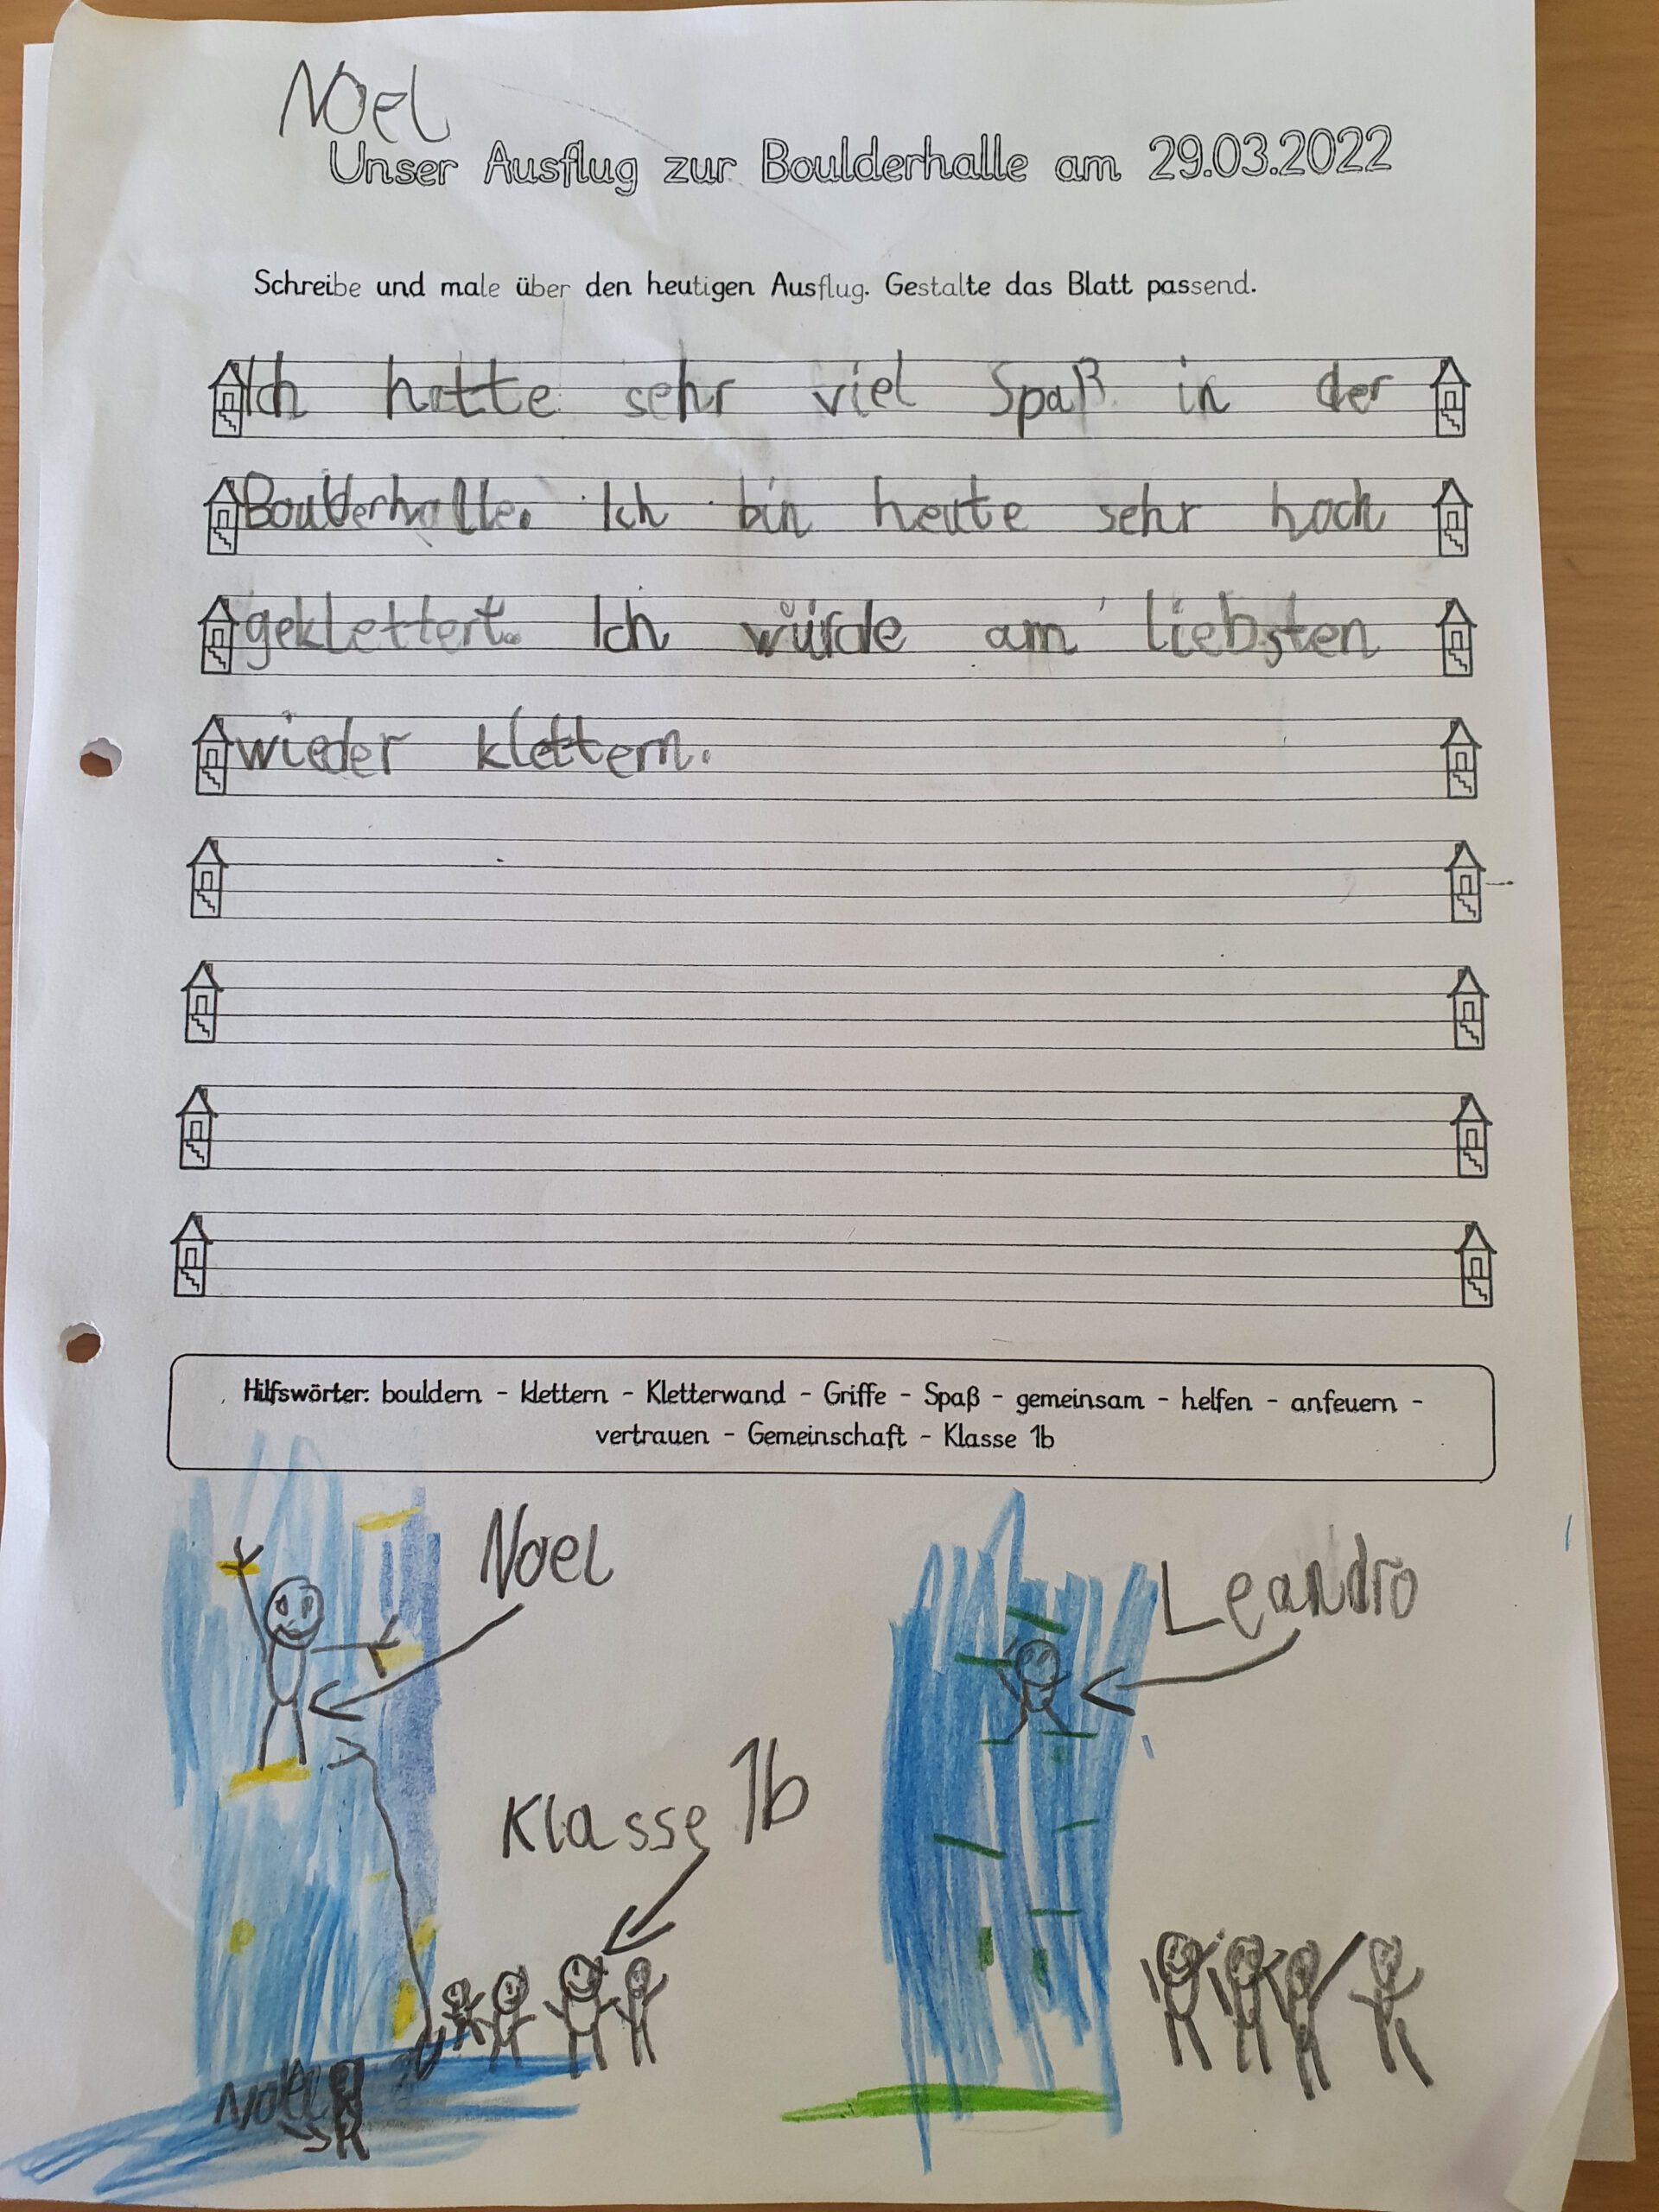 Noel
Unser Ausflug zur Boulderhalle am 29.03.2022
Schreibe und male über den heutigen Ausflug. Gestalte das Blatt passend.
Ich hatte sehr viel Spaß in der
Boulderhalle. Ich bin heute sehr hoch
geklettert. Ich würde am liebsten
wieder klettern.
Hilfswörter: bouldern - klettern - Kletterwand - Griffe - Spaß - gemeinsam - helfen - anfeuern -
vertrauen - Gemeinschaft - Klasse 1b
Noel
Leandro
Klasse 1b
Noel